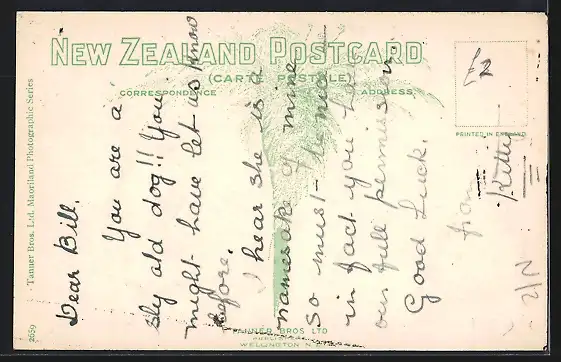 NEW ZEALAND POSTCARD
(CARTE POSTALE)
CORRESPONDENCE
ADDRESS
PRINTED IN ENGLAND
£2
Dear Bill,
You are a
sly old dog!! You
might have let us know
before.
I hear she is a
namesake of mine
so must be nice
in fact you have
our full permission.
Good Luck.
from
Kitty
2/N
TANNER BROS LTD
PUBLISHERS
WELLINGTON N.Z.
2659
Tanner Bros. Ltd. Maoriland Photographic Series